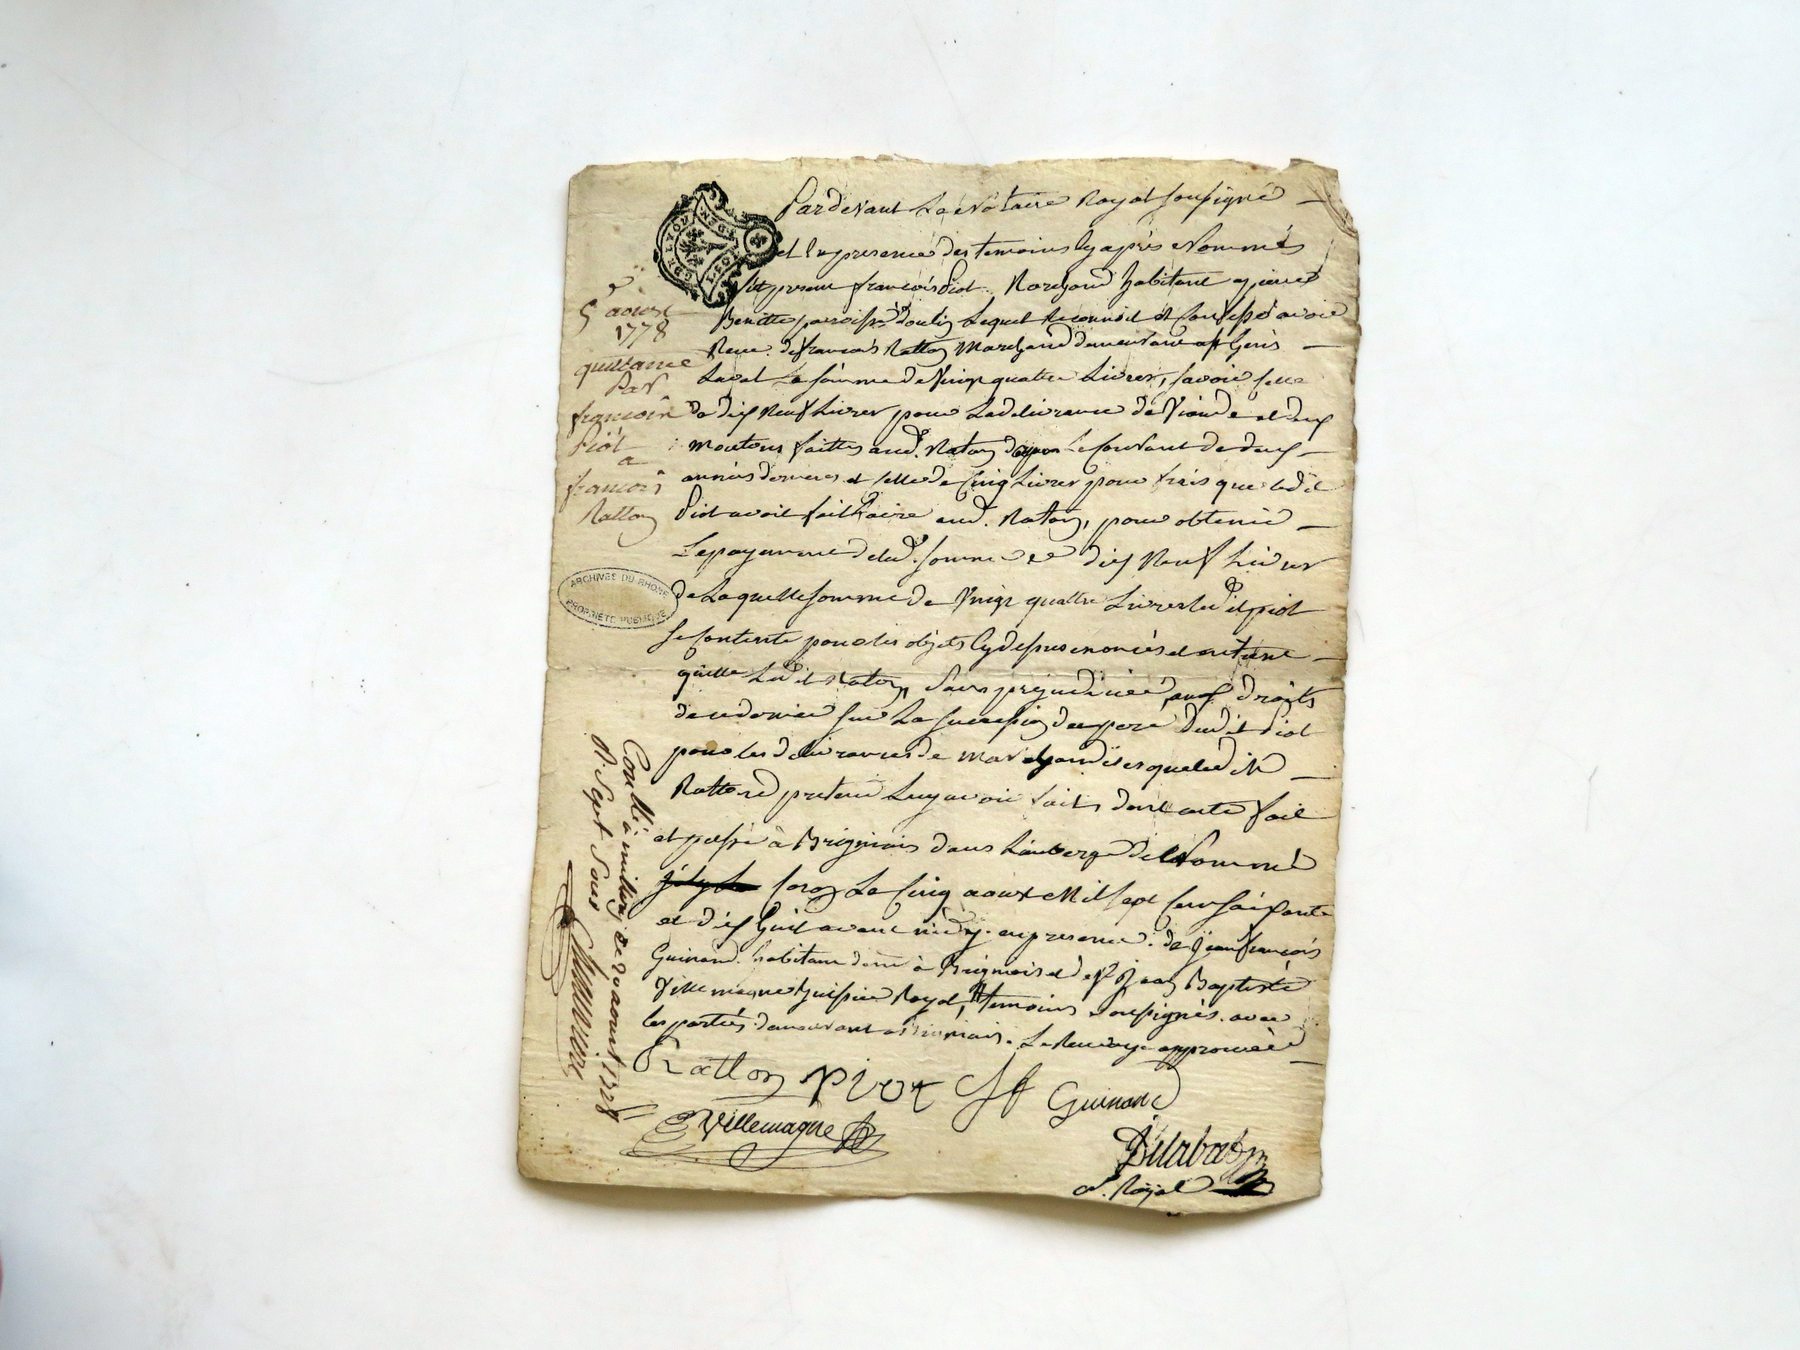 GEN. DE LYON
5 aoust
1778
quittance
Par
françois
Piot
a
françois
Ratton
ARCHIVES DU RHONE
PROPRIÉTÉ PUBLIQUE
Pardevant Le Notaire Royal soussigné
et En presence des temoins Cy après Nommés
fut present françois Piot Marchand habitant a pierre
Benitte paroisse d'oulin Lequel reconnoit et Confesse avoir
Receu de françois Ratton Marchand demeurant a st Genis
Laval La somme de Vingt quattre Livres, savoir celle
de dix Neuf Livres pour La delivrance de Viande et deux
moutons faittes aud. Ratton Le Courant de deux
années dernieres et celle de Cinq Livres pour frais que led it
Piot avoit fait faire aud. Ratton, pour obtenir
Le payement de lad. somme de dix Neuf Livres
de Laquelle somme de Vingt quattre Livres led it piot
se Contente pour les objets Cy dessus enoncés et en tient
quitte Led it Ratton Sans prejudice aux droits
de ce dernier sur La succession du pere dud it Piot
pour les delivrances de marchandises que led it
Ratton pretend Luy avoir faits dont acte fait
et passé à Brignais dans L'auberge de Nommé
Le Cinq aoust Mil sept Cent soixante
et dix huit avant midy en presence de Jean françois
Guinand habitant à Brignais et de sr Jean Baptiste
Villemagne huissier Royal, temoins soussignés avec
les parties demeurant a Brignais. Le Renvoye approuvée
Ratton Piot J f Guinand
Villemagne
Delabat
N. Royal
Conllé à millery ce 20 aoust 1778
R. Sept Sous